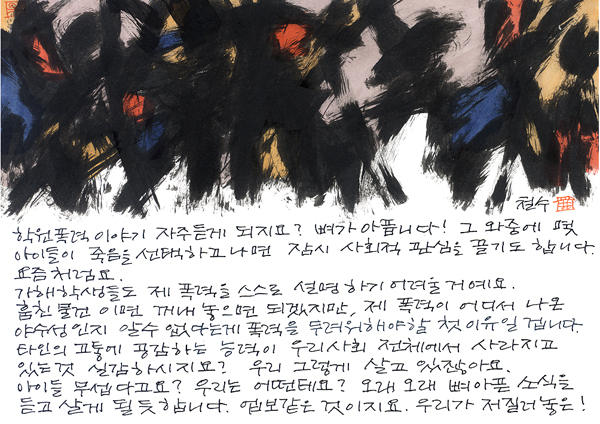 철수
학원폭력 이야기 자주듣게 되지요? 뼈가아픕니다! 그 와중에 몇
아이들이 죽음을 선택하고나면 잠시 사회적 관심을 끌기도 합니다.
요즘처럼요.
가해학생들도 제 폭력을 스스로 설명하기 어려울거예요.
훔친 물건 이면 꺼내 놓으면 되겠지만, 제 폭력이 어디서 나온
야수성인지 알수 없다는게 폭력을 두려워해야할 첫 이유일 겁니다.
타인의 고통에 공감하는 능력이 우리사회 전체에서 사라지고
있는것 실감하시지요? 우리 그렇게 살고 있잖아요.
아이들 무섭다고요? 우리는 어떤데요? 오래 오래 뼈아픈 소식을
듣고 살게 될듯합니다. 업보같은 것이지요. 우리가 저질러놓은!